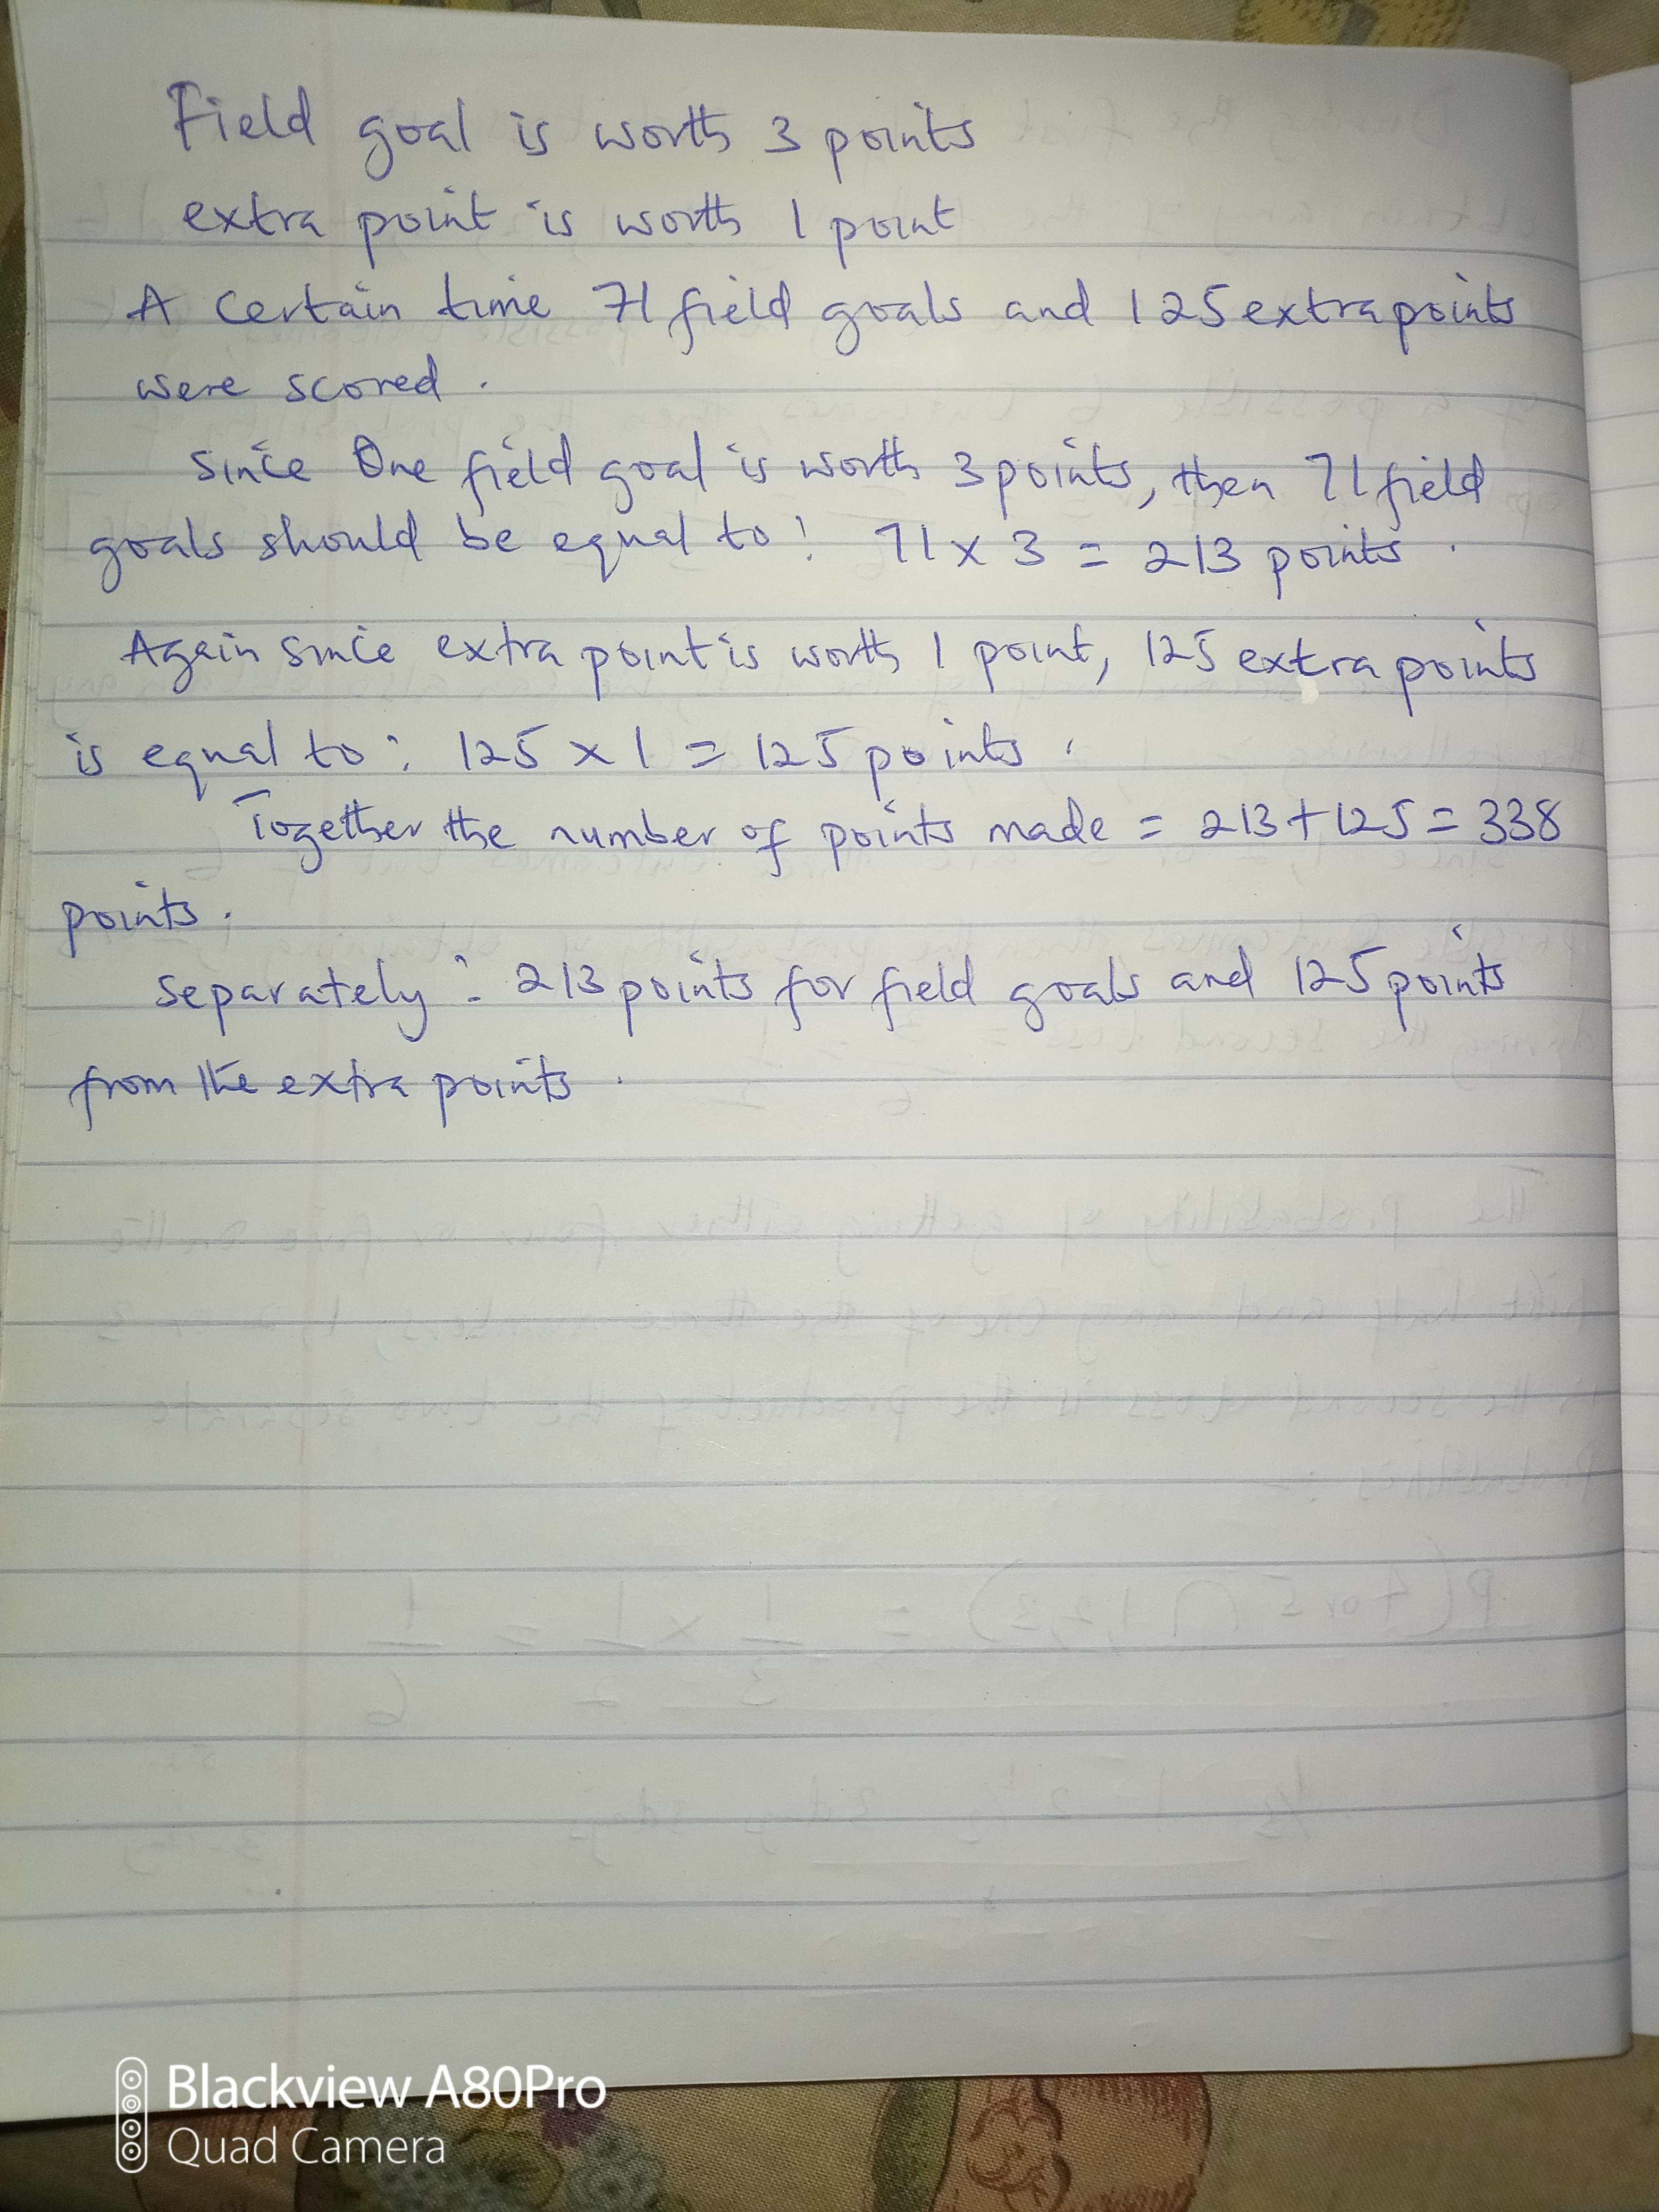 Field goal is worth 3 points
extra point is worth 1 point
A certain time 71 field goals and 125 extra points
were scored.
Since One field goal is worth 3 points, then 71 field
goals should be equal to: 71 x 3 = 213 points.
Again since extra point is worth 1 point, 125 extra points
is equal to: 125 x 1 = 125 points.
Together the number of points made = 213 + 125 = 338
points.
Separately: 213 points for field goals and 125 points
from the extra points.
Blackview A80Pro
Quad Camera